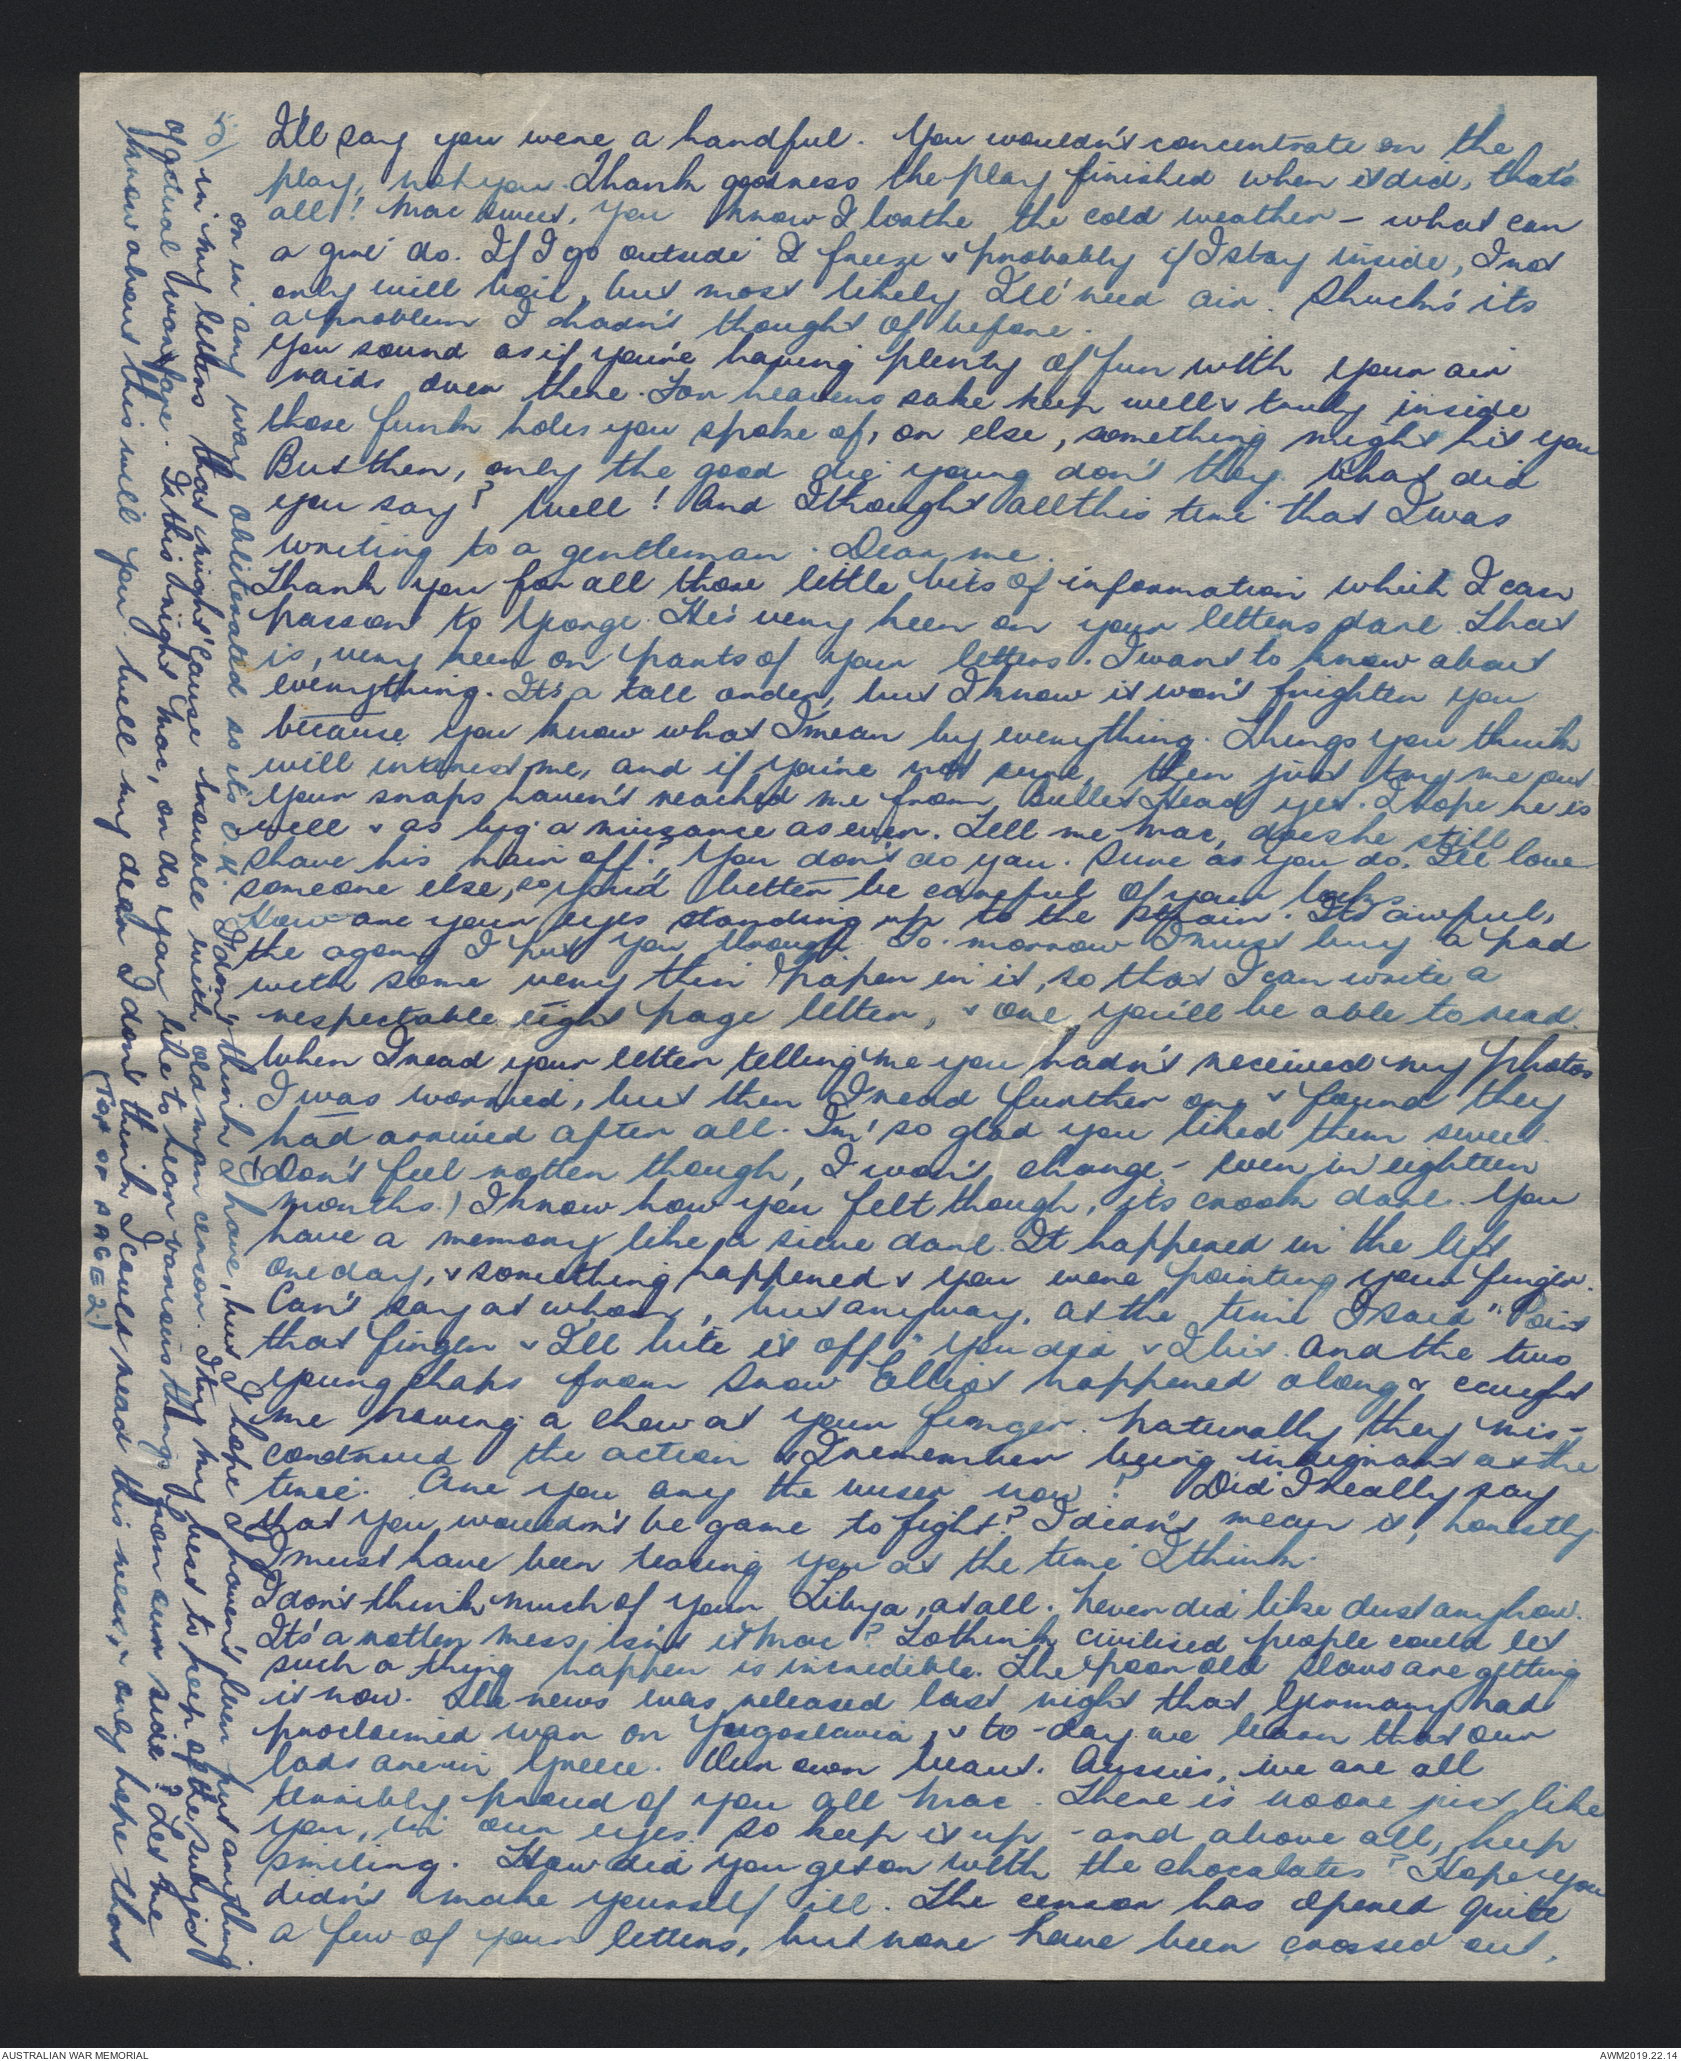 5)
I'll say you were a handful. You wouldn't concentrate on the
play, not you. Thank goodness the play finished when it did, that's
all! Mac sweet, you know I loathe the cold weather - what can
a girl do. If I go outside I freeze & probably if I stay inside, I not
only will boil, but most likely I'll need air. Shuck's its
a problem I hadn't thought of before.
You sound as if you're having plenty of fun with your air
raids over there. For heavens sake keep well & truly inside
those funk holes you spoke of, or else, something might hit you
But then, only the good die young don't they. What did
you say? Well! And I thought all this time that I was
writing to a gentleman. Dear me.
Thank you for all those little bits of information which I can
pass on to George. He's very keen on your letters darl. That
is, very keen on parts of your letters. I want to know about
everything. It's a tall order, but I know it won't frighten you
because you know what I mean by everything. Things you think
will interest me, and if you're not sure, then just try me out
Your snaps haven't reached me from Bullet Head yet. I hope he is
well & as big a nuisance as ever. Tell me Mac, does he still
shave his hair off? You don't do you. Sure as you do, I'll love
someone else, so you'd better be careful of your locks
How are your eyes standing up to the strain. It's awful,
the agony I put you through. To-morrow I must buy a pad
with some very thin paper in it, so that I can write a
respectable eight page letter, & one you'll be able to read.
When I read your letter telling me you hadn't received my photos
I was worried, but then I read further on & found they
had arrived after all. I'm so glad you liked them sweet
(Don't feel rotten though, I won't change - even in eighteen
months.) I know how you felt though, its crook darl. You
have a memory like a sieve darl. It happened in the lift
one day, & something happened & you were pointing your finger.
Can't say at whom, but anyway, at the time I said "Point
that finger & I'll bite it off" You did & I bit. And the two
young chaps from Snow Elliot happened along & caught
me having a chew at your finger. Naturally they mis-
construed the action & I remember being indignant at the
time. Are you any the wiser now? Did I really say
that you wouldn't be game to fight? I didn't mean it, honestly
I must have been teasing you at the time I think.
I don't think much of your Libya, at all. Never did like dust anyhow.
It's a rotten mess, isn't it Mac? To think civilised people could let
such a thing happen is incredible. The poor old Slavs are getting
it now. The news was released last night that Germany had
proclaimed war on Yugoslavia, & to-day we learn that our
lads are in Greece. Our own brave Aussies, we are all
terribly proud of you all Mac. There is no one just like
you, in our eyes. So keep it up - and above all, keep
smiling. How did you get on with the chocolates? Hope you
didn't make yourself ill. The censor has opened quite
a few of your letters, but none have been crossed out,
or in any way obliterated so its O.K. I don't think I have, but I hope I haven't been put anything
in my letters that might cause trouble with old man censor. I try my best to keep off the subject
of actual warfare. Is this right Mac, or do you like to hear various things from our side? Let me
know about this will you. Well my dear I don't think I could read this mess, & only hope that
(TOP OF PAGE 2.)
AUSTRALIAN WAR MEMORIAL
AWM2019.22.14